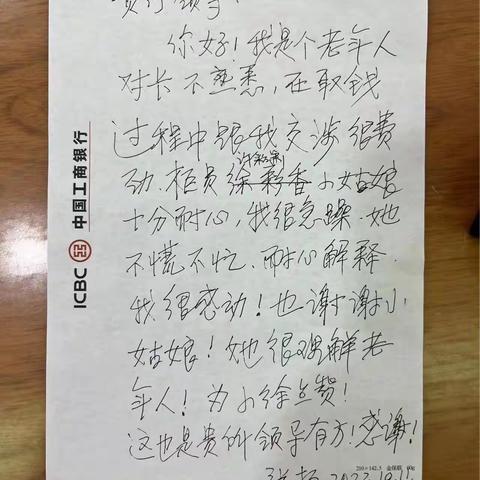 贵行领导:
你好!我是个老年人
对长不熟悉,在取钱
过程中跟我交涉很费
动.柜员徐彩香小姑娘
十分耐心,我很急躁.她
不慌不忙.耐心解释.
我很感动!也谢谢小
姑娘!她很理解老
年人!为小徐点赞!
这也是贵行领导有方!感谢!
2023.10.11
ICBC 中国工商银行
210×142.5 金保联 60g